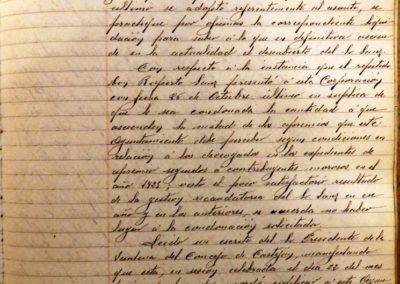 último se adoptó referentemente al asunto, se
practique por oficinas la correspondiente liqui-
dación para saber á lo que en definitiva ascien-
de en la actualidad el descubierto del Sr. Sanz
Con respecto á la instancia que el repetido
Don Ruperto Sanz presentó á esta Corporación
con fecha 25 de Octubre último en suplica de
que le sea condonada la cantidad á que
ascienden la mitad de los apremios que este
Ayuntamiento debe percibir segun condiciones en
relación á los devengados en los expedientes de
apremio seguidos á contribuyentes morosos en el
año 1925, visto el poco satisfactorio resultado
de la gestión recaudatoria del Sr. Sanz en ese
año y en los anteriores, se acuerda no haber
lugar á la condonación solicitada.
Leido un escrito del Sr. Presidente de la
del Concejo de Castejón, manifestando
que esta, en sesión celebrada el dia 22 del mes
á este Ayun